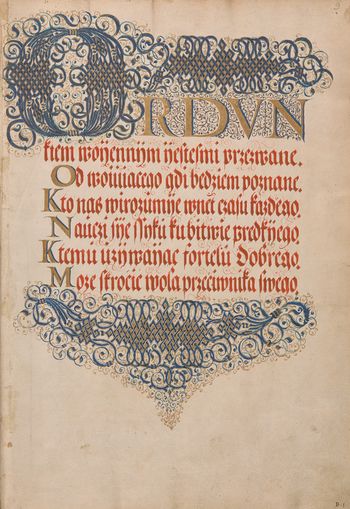 ORDVN
kiem woijennijm ijestesmi przezwane.
Od woiuiacego gdi bedziem poznane.
Kto nas wirozumije wnet czasu kazdego.
Nauczi sije ssyku ku bitwie predkijego
Ktemu uzijwaijac fortelu Dobrego
Moze skrocic wola przeciwnika swego